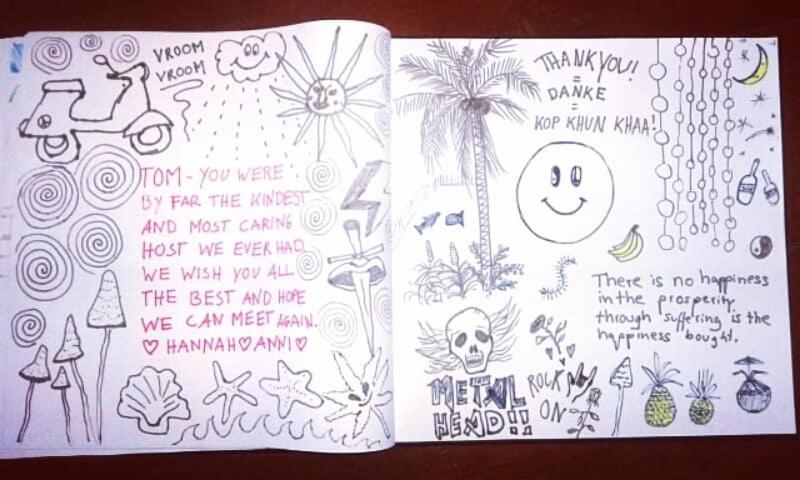 VROOM
VROOM
TOM - YOU WERE
BY FAR THE KINDEST
AND MOST CARING
HOST WE EVER HAD
WE WISH YOU ALL
THE BEST AND HOPE
WE CAN MEET AGAIN.
♡ HANNAH ♡ ANNI ♡
THANK YOU!
=
DANKE
=
KOP KHUN KHAA!
There is no happiness
in the prosperity,
through suffering is the
happiness bought.
METAL
HEAD!!
ROCK
ON